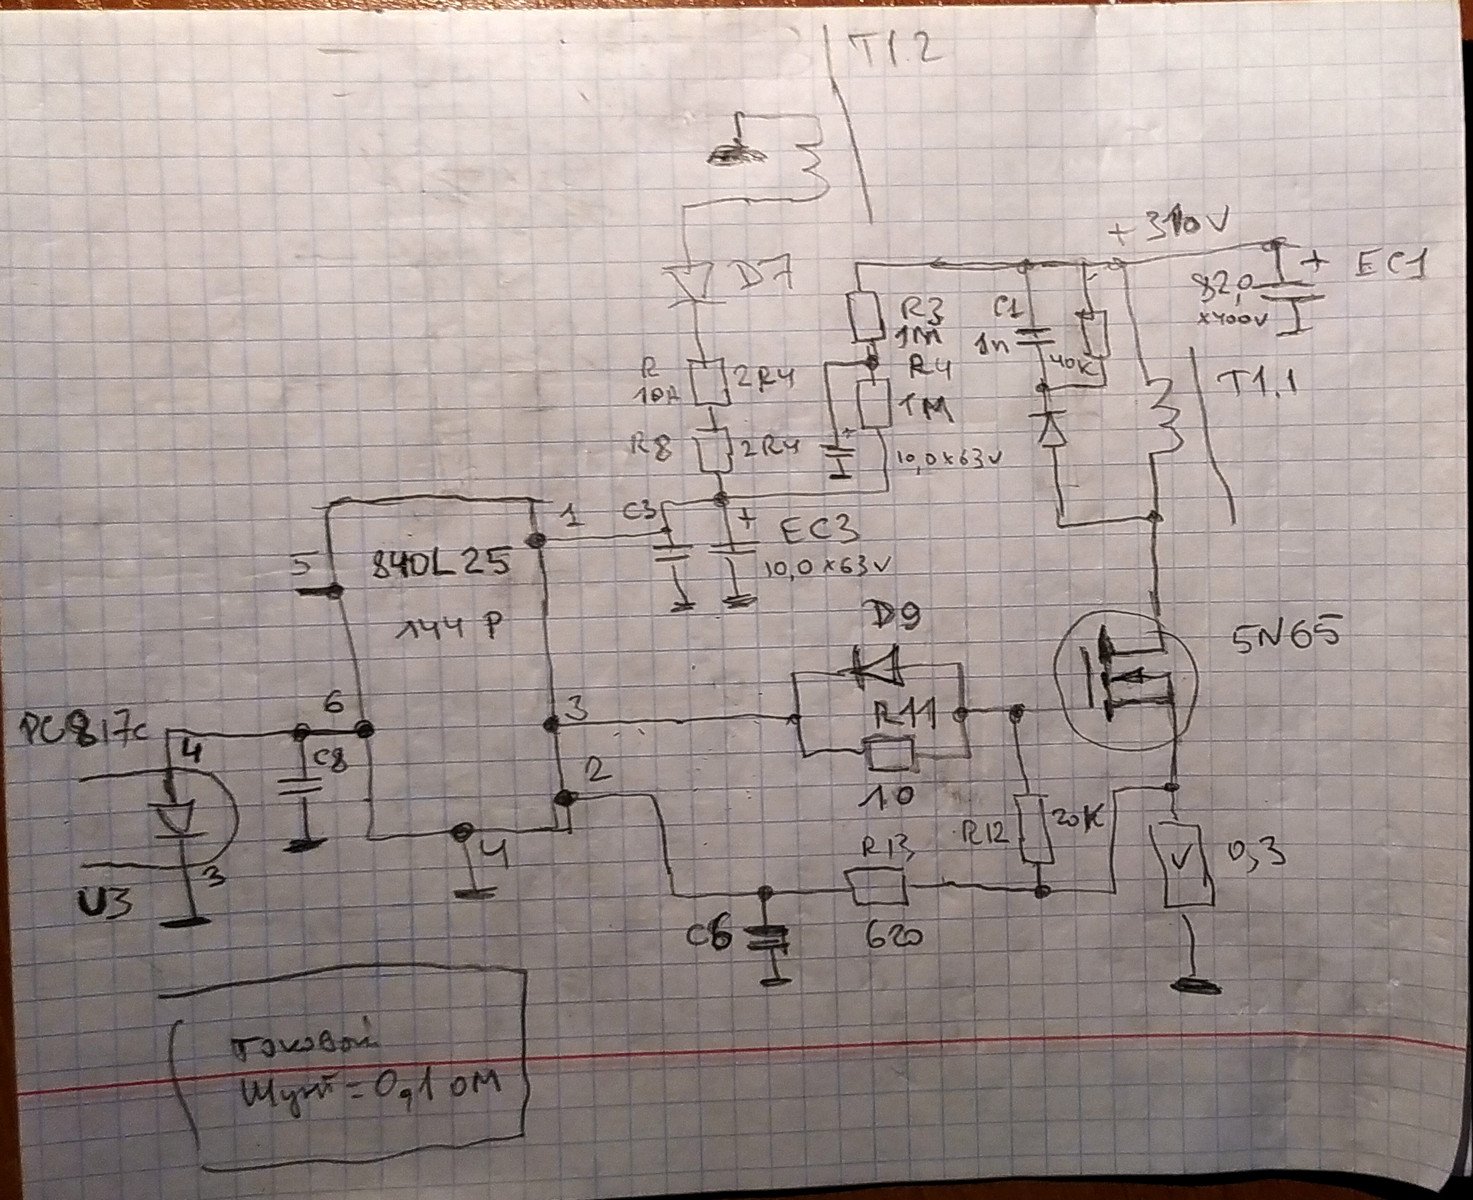 T1.2
+310V
+ EC1
82,0
x400V
D7
R3
1M
C1
1n
40K
R4
1M
T1.1
R
10A
2R4
R8
2R4
10,0x63V
+
1
C3
+
EC3
10,0x63V
5
840L25
144P
D9
5N65
6
3
R11
PC817c
4
C8
2
10
R12
20K
R13
4
0,3
V
3
U3
C6
620
Токовый
Шунт=0,1 ом